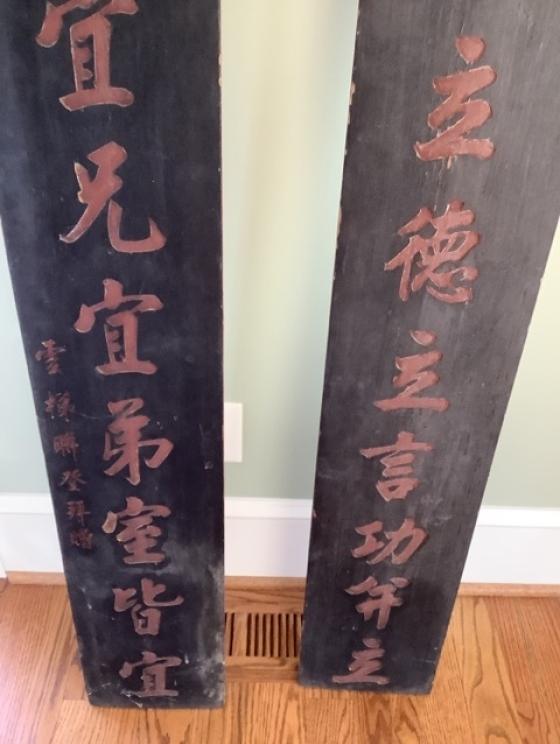 立德立言功并立
宜兄宜弟室皆宜
雲聯登拜贈